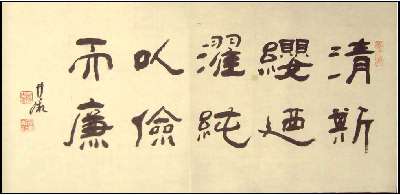 清斯
纓廼
濯純
以儉
而廉